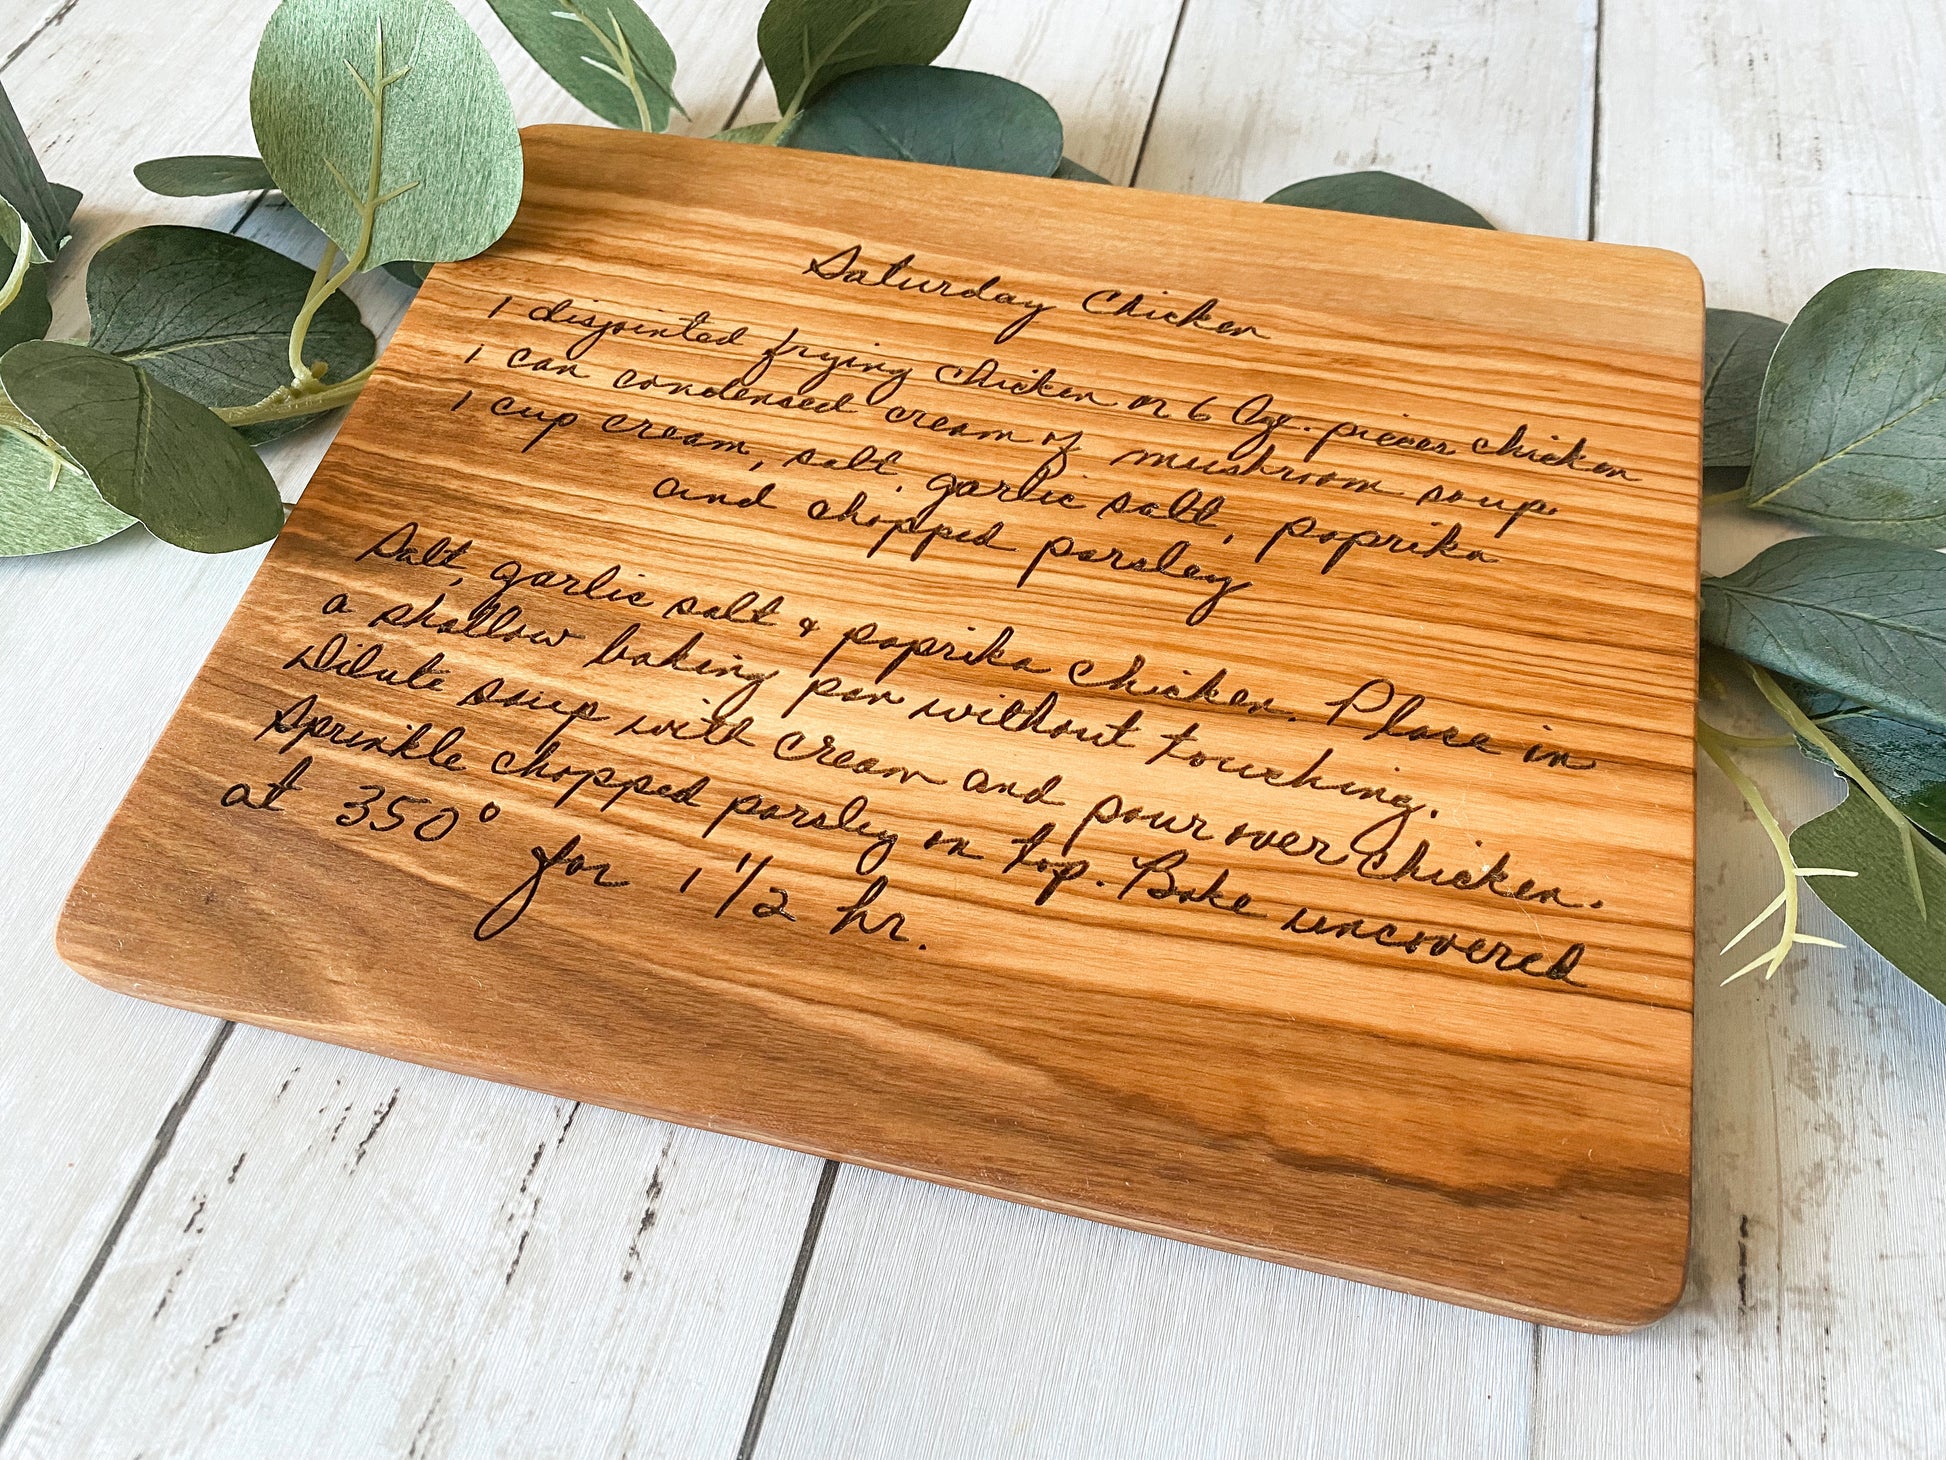 Saturday Chicken
1 disjointed frying chicken or 6 lge. pieces chicken
1 can condensed cream of mushroom soup
1 cup cream, salt, garlic salt, paprika
and chopped parsley
Salt, garlic salt & paprika chicken. Place in
a shallow baking pan without touching.
Dilute soup with cream and pour over chicken.
Sprinkle chopped parsley on top. Bake uncovered
at 350° for 1 1/2 hr.